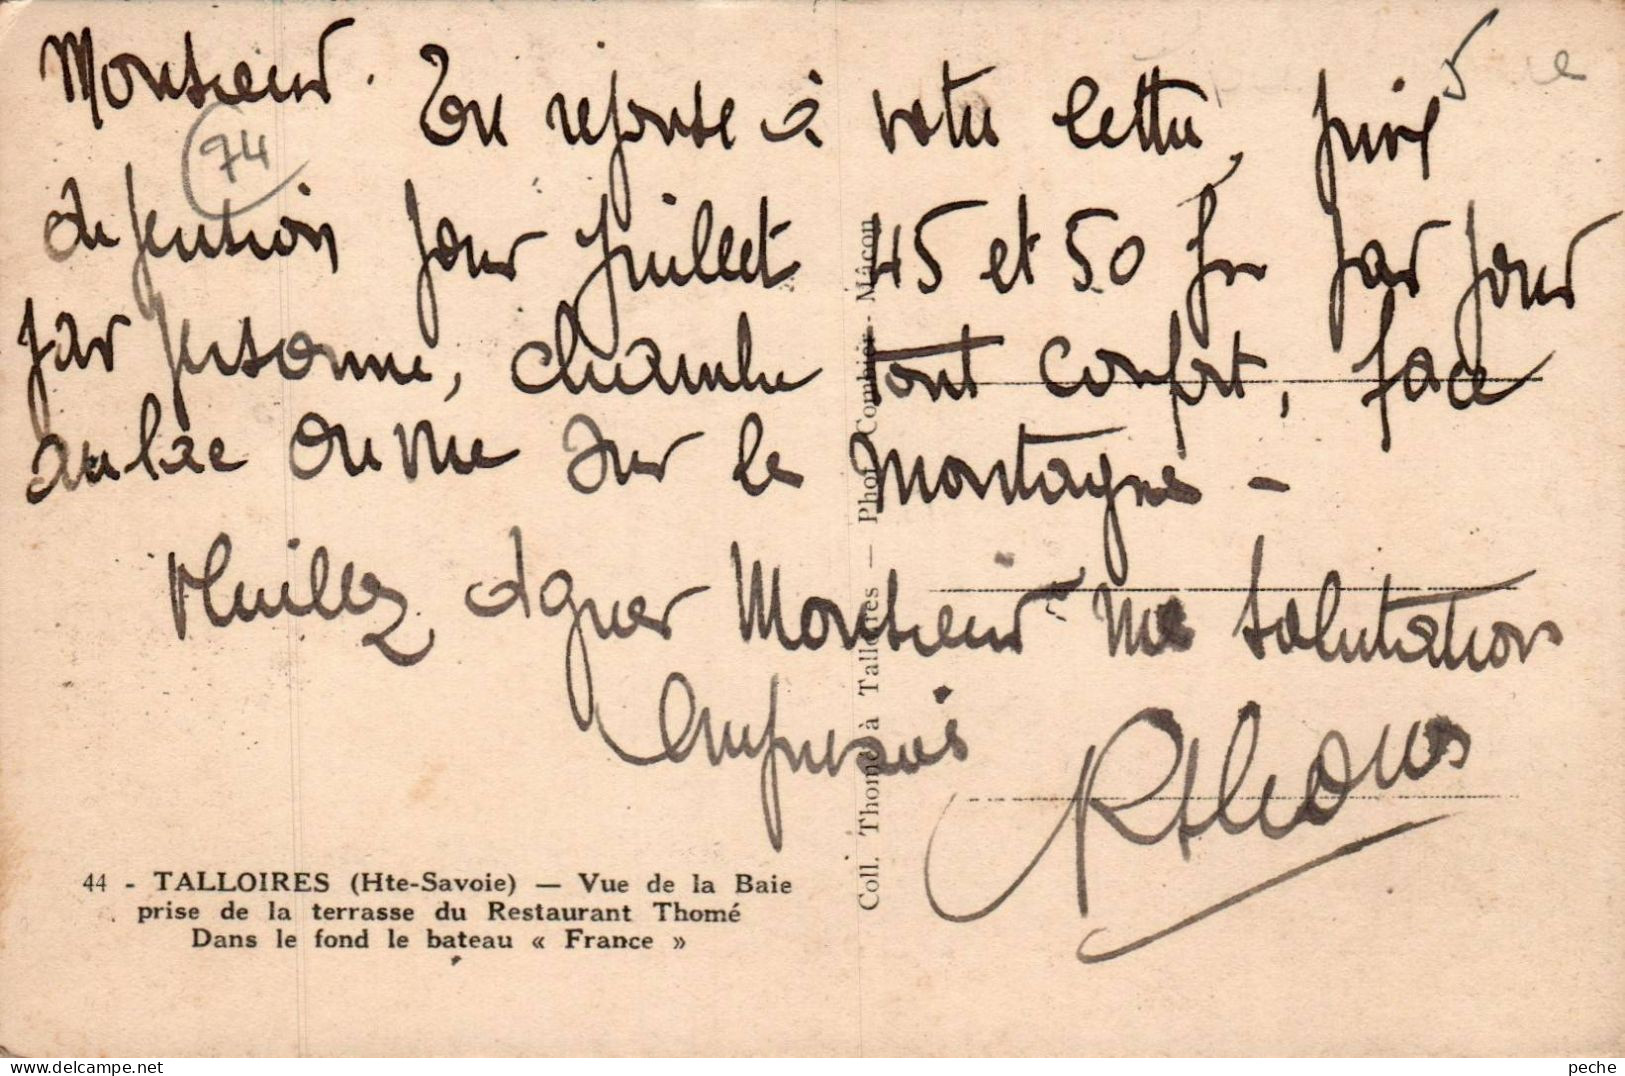 Monsieur. En reponse à votre lettre, prix
de pention pour Juillet 45 et 50 fr par jour
par personne, chambre tout confort, face
au lac ou vue sur les montagnes -
Veuillez agreer Monsieur mes salutations
empressés
RThomé
74
44 - TALLOIRES (Hte-Savoie) — Vue de la Baie
prise de la terrasse du Restaurant Thomé
Dans le fond le bateau « France »
Coll. Thomé à Talloires — Phot. Combier - Mâcon
peche